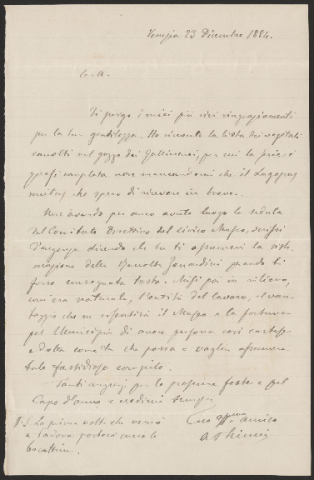 Venezia 23 Dicembre 1884.
C. A.
Ti porgo i miei più vivi ringraziamenti
per la tua gentilezza. Ho ricevuto la lista dei vegetali
raccolti nel gozzo dei Gallinacei, per cui la
completa non mancandomi che il Lagopus
mutus che spero di ricevere in breve.
Non avendo per anco avuto luogo la seduta
del Comitato Direttivo del Civico Museo, scrissi
d'urgenza dicendo che tu ti assumevi la siste-
mazione della Raccolta Zanardini quando ti
fosse consegnata tosto. Misi poi in rilievo,
com'era naturale, l'entità del lavoro, il van-
taggio che ne risentirà il Museo e la fortuna
pel Municipio di avere persona così cortese
e dotta come te che possa e voglia assumere
tale fastidioso compito.
Tanti auguri per le prossime feste e pel
Capo d'anno e credimi sempre
Tuo aff.mo amico
P.S. La prima volta che verrò
a Padova porterò meco le